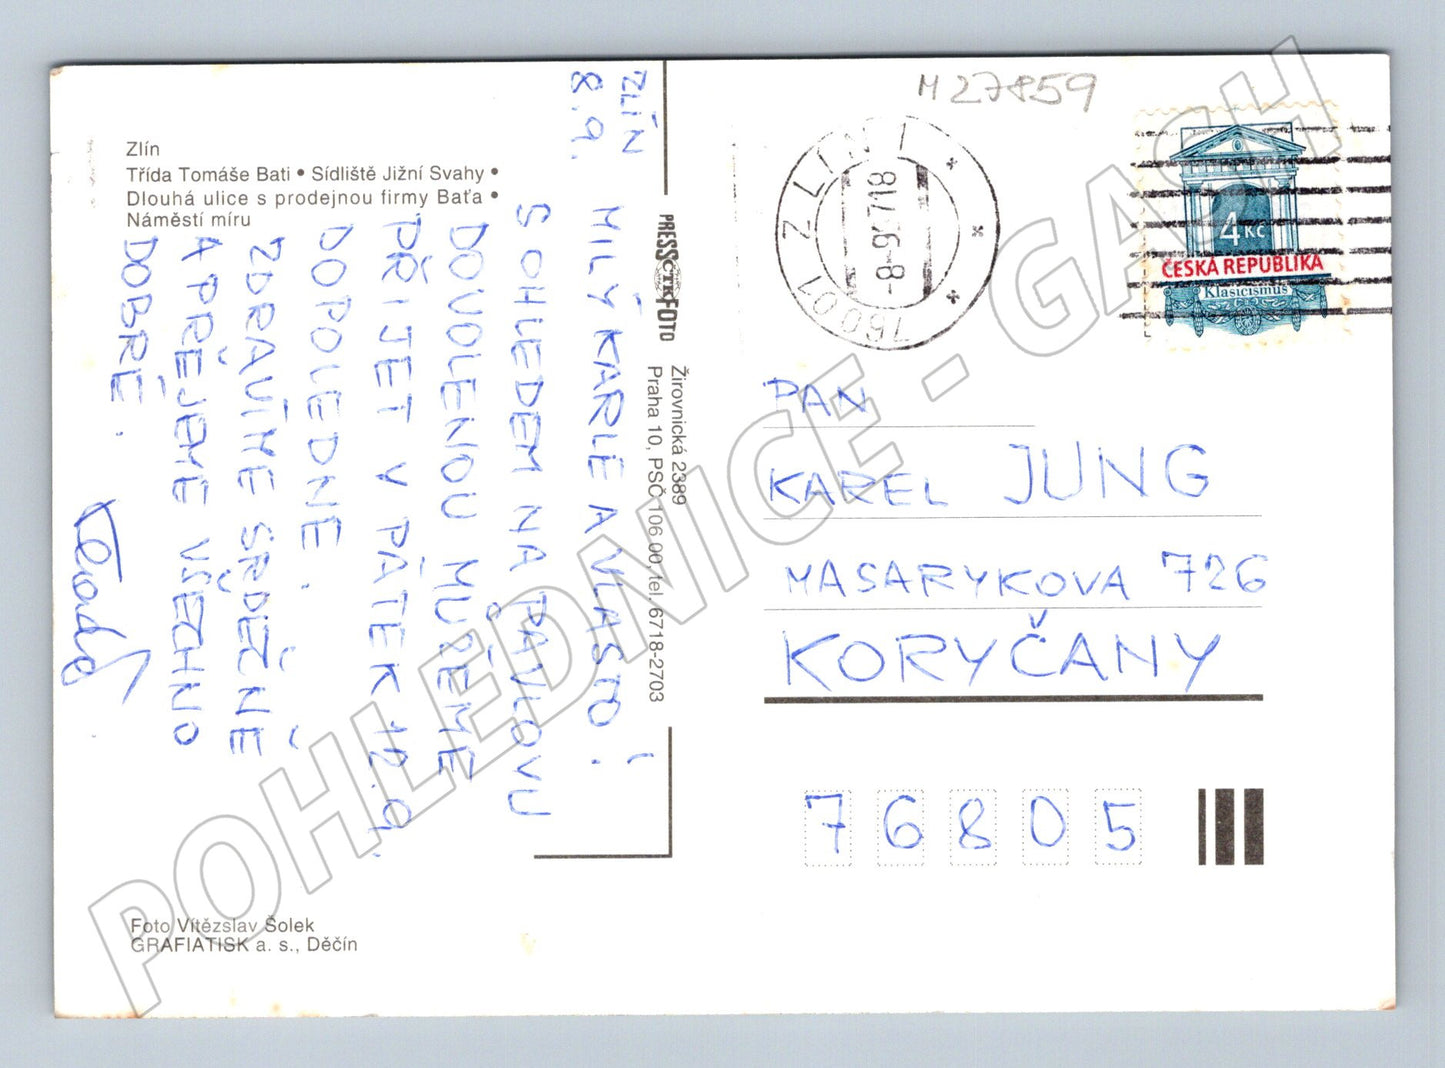 M 27859
Zlín
Třída Tomáše Bati • Sídliště Jižní Svahy •
Dlouhá ulice s prodejnou firmy Baťa •
Náměstí míru
ZLÍN
8.9.
MILÝ KARLE A VLASTO!
S OHLEDEM NA PAVLOVU
DOVOLENOU MŮŽEME
PŘIJET V PÁTEK 12.9.
DOPOLEDNE.
ZDRAVÍME SRDEČNĚ
A PŘEJEME VŠECHNO
DOBRÉ.
PRESSČTKFOTO
Žirovnická 2389
Praha 10, PSČ 106 00, tel. 6718-2703
760 01 ZLÍN 1
-8-9.97 18
4 Kč
ČESKÁ REPUBLIKA
Klasicismus
PAN
KAREL JUNG
MASARYKOVA 726
KORYČANY
76805
Foto Vítězslav Šolek
GRAFIATISK a. s., Děčín
POHLEDNICE - GASH